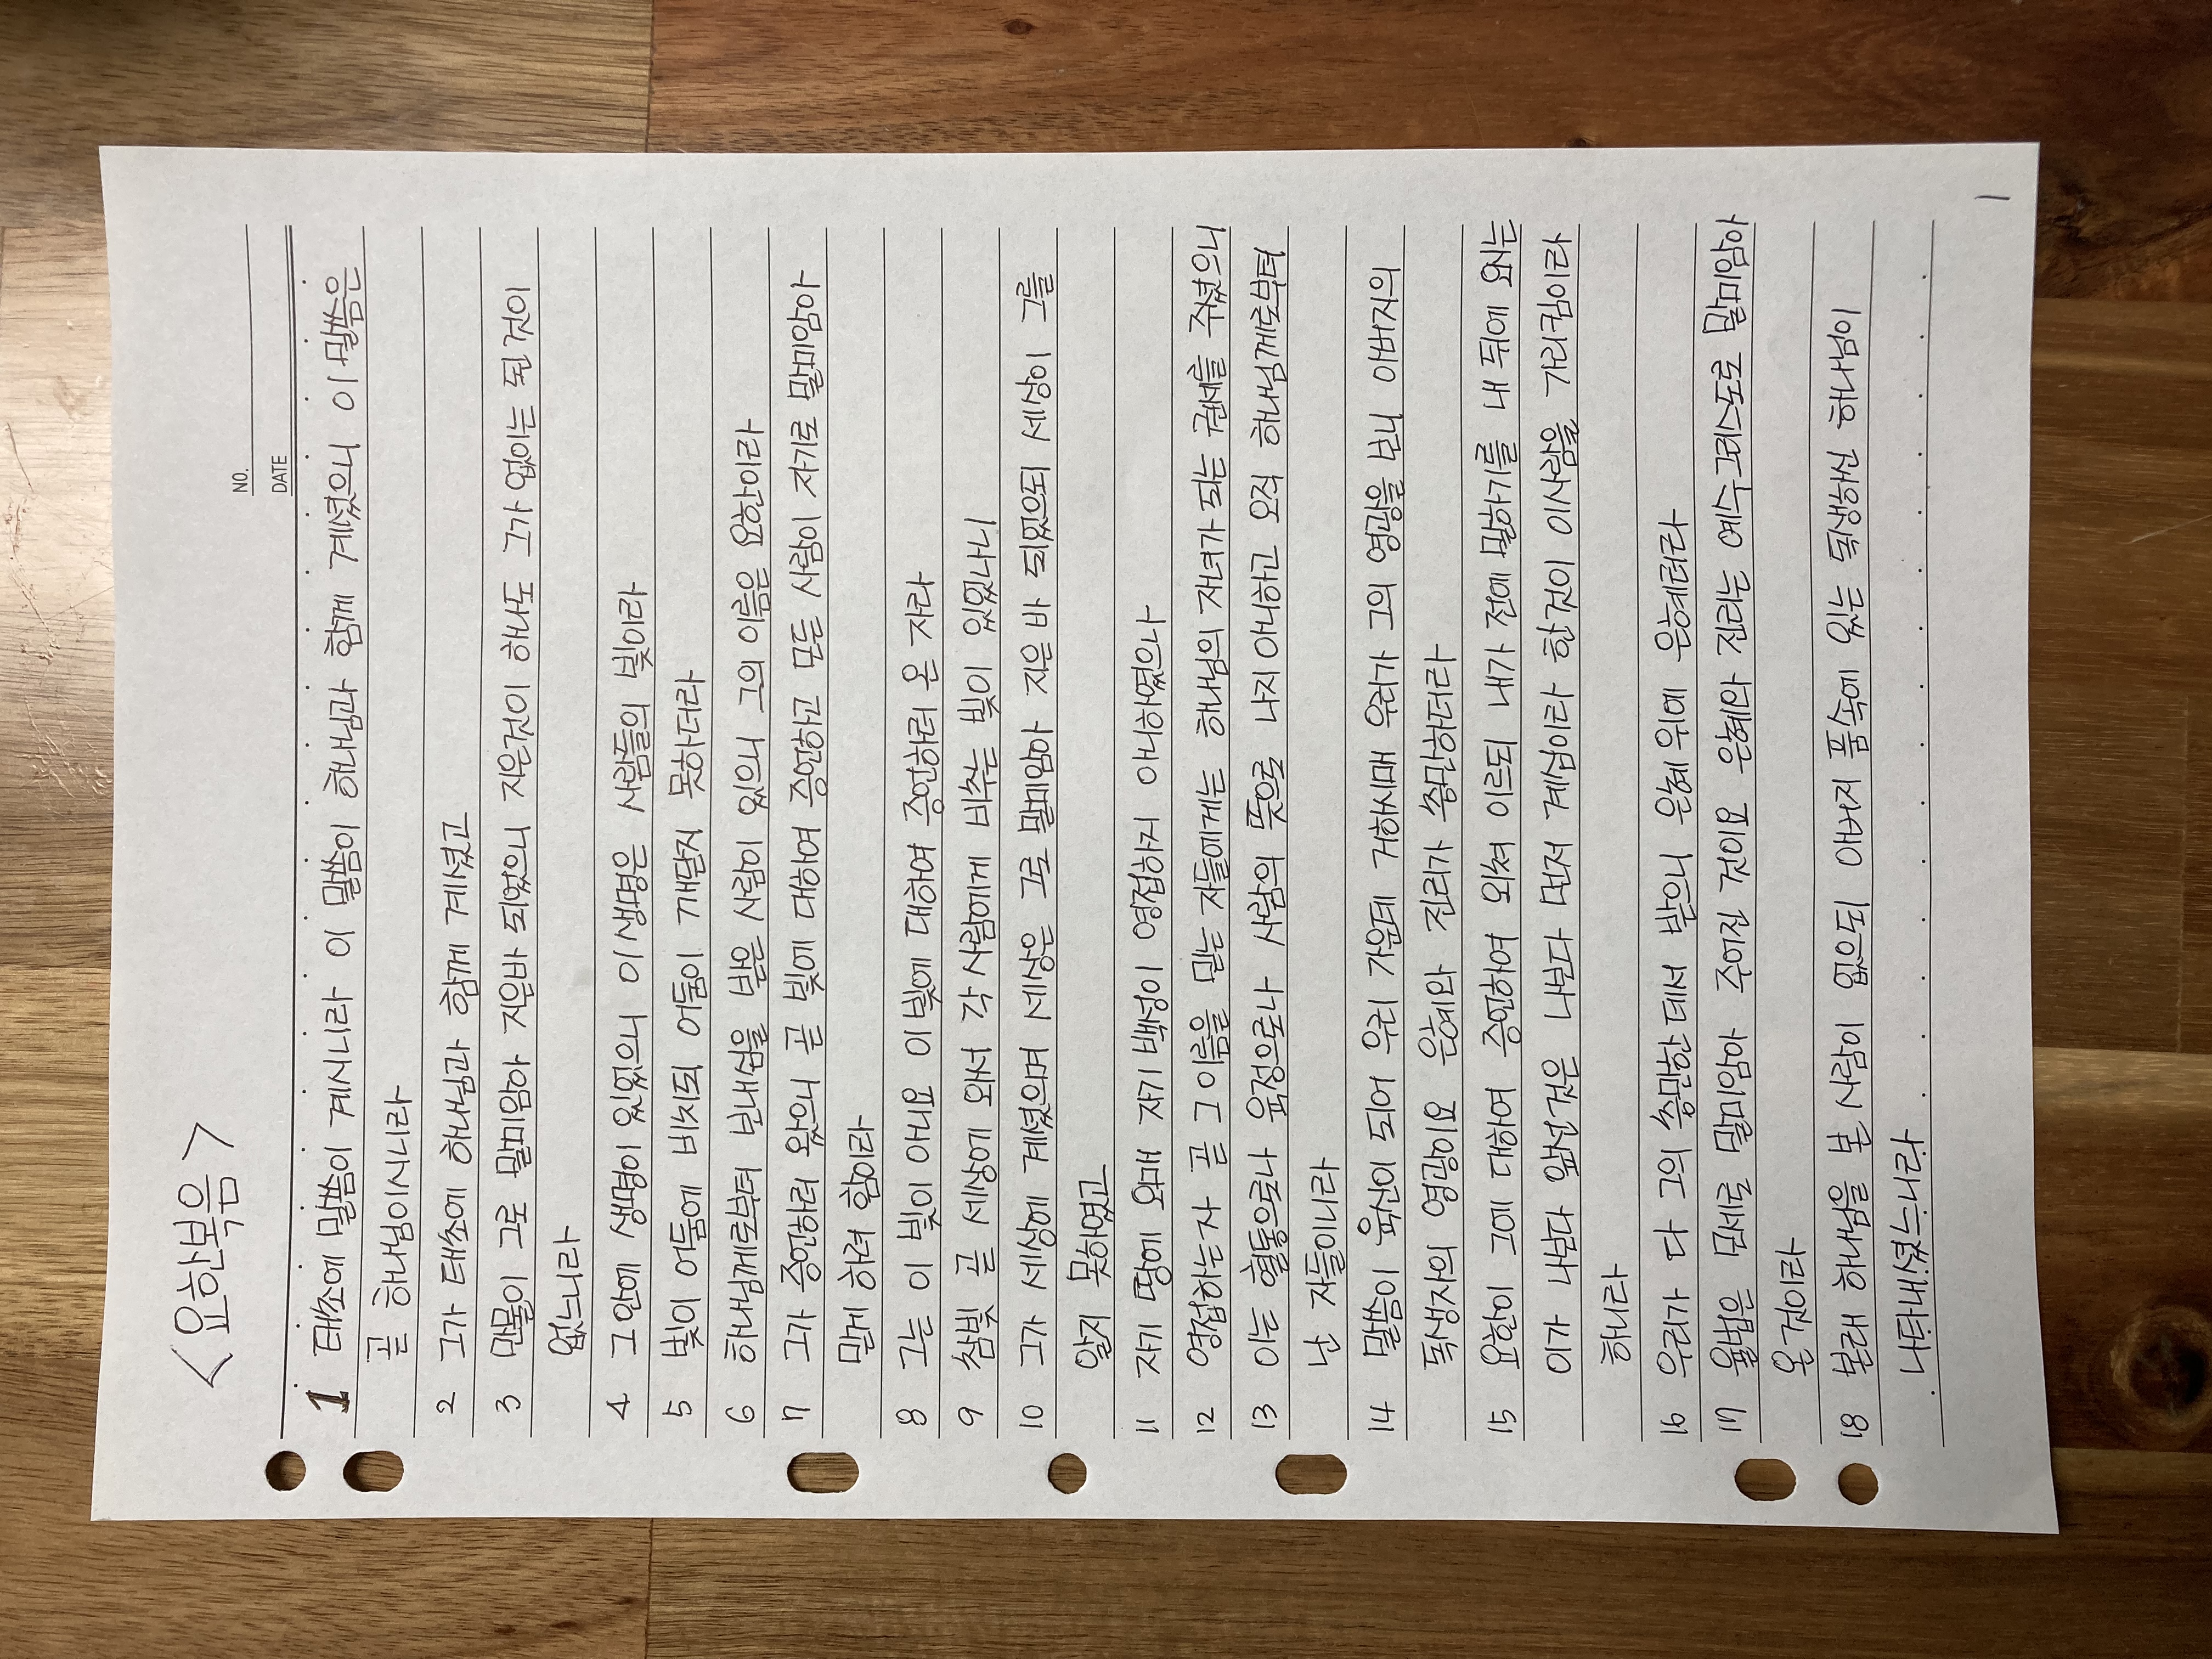 <요한복음>
NO.
DATE
1 태초에 말씀이 계시니라 이 말씀이 하나님과 함께 계셨으니 이 말씀은
곧 하나님이시니라
2 그가 태초에 하나님과 함께 계셨고
3 만물이 그로 말미암아 지은바 되었으니 지은것이 하나도 그가 없이는 된 것이
없느니라
4 그 안에 생명이 있었으니 이 생명은 사람들의 빛이라
5 빛이 어둠에 비치되 어둠이 깨닫지 못하더라
6 하나님께로부터 보내심을 받은 사람이 있으니 그의 이름은 요한이라
7 그가 증언하러 왔으니 곧 빛에 대하여 증언하고 모든 사람이 자기로 말미암아
믿게 하려 함이라
8 그는 이 빛이 아니요 이 빛에 대하여 증언하러 온 자라
9 참빛 곧 세상에 와서 각 사람에게 비추는 빛이 있었나니
10 그가 세상에 계셨으며 세상은 그로 말미암아 지은 바 되었으되 세상이 그를
알지 못하였고
11 자기 땅에 오매 자기 백성이 영접하지 아니하였으나
12 영접하는 자 곧 그 이름을 믿는 자들에게는 하나님의 자녀가 되는 권세를 주셨으니
13 이는 혈통으로나 육정으로나 사람의 뜻으로 나지 아니하고 오직 하나님께로부터
난 자들이니라
14 말씀이 육신이 되어 우리 가운데 거하시매 우리가 그의 영광을 보니 아버지의
독생자의 영광이요 은혜와 진리가 충만하더라
15 요한이 그에 대하여 증언하여 외쳐 이르되 내가 전에 말하기를 내 뒤에 오시는
이가 나보다 앞선것은 나보다 먼저 계심이라 한것이 이사람을 가리킴이라
하니라
16 우리가 다 그의 충만한 데서 받으니 은혜 위에 은혜러라
17 율법은 모세로 말미암아 주어진 것이요 은혜와 진리는 예수 그리스도로 말미암아
온 것이라
18 본래 하나님을 본 사람이 없으되 아버지 품 속에 있는 독생하신 하나님이
나타내셨느니라
1